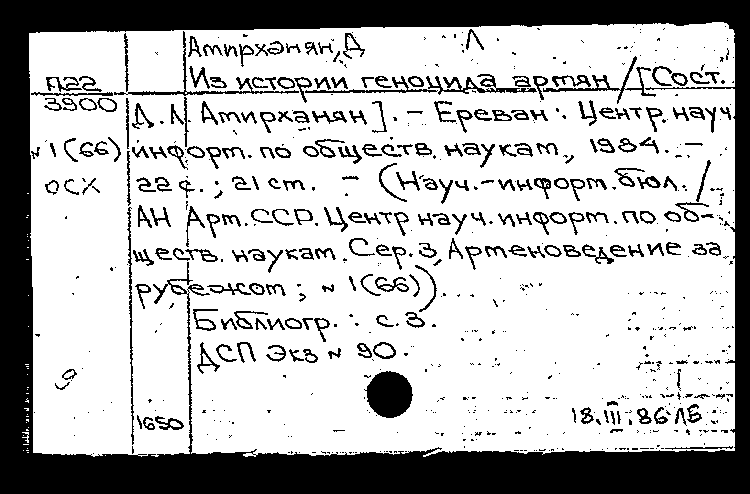 Амирханян, Д Л
П22 Из истории геноцида армян / [Сост.
3900 Д.Л. Амирханян]. – Ереван: Центр науч.
№ 1(66) информ. по обществ. наукам, 1984. –
ОСХ 22 с.; 21 см. – (Науч.-информ. бюл. /
АН Арм.ССР. Центр науч. информ. по об-
ществ. наукам. Сер. 3, Арменоведение за
рубежом; № 1(66)).
Библиогр.: с. 3.
ДСП Экз № 90.
9
1650 18.III.86 ЛБ